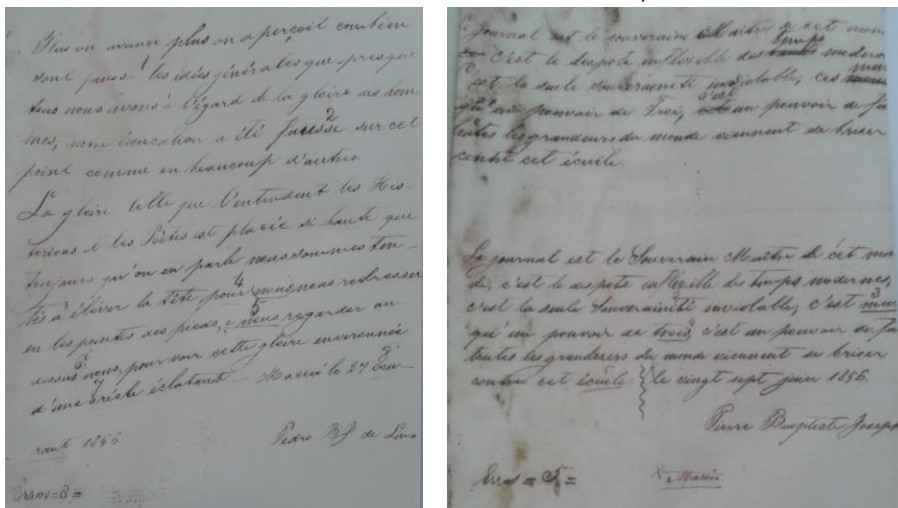 Plus on avance plus on s'aperçoit combien
sont les idées générales que presque
tous nous avons à l'égard de la gloire des hom-
mes, notre éducation a été fausse sur cet
point comme en beaucoup d'autres.
La gloire telle que l'entendent les His-
toriens et les Poëtes est placée si haute que
toujours qu'on en parle nous sommes ten-
tés à élever la tête pour nous redresser
en les pointes des pieds, e nous regarder au
dessus nous, pour voir cette gloire environnée
d'une éclatant — Maceió le 27
1856 Pedro B. J. de Lima
Erros = 8 =
Le journal est le souverain Maître de cet mon
C'est le despote inflexible des temps moderne
c'est la seule souveraineté inviolable,
un pouvoir de Troi, c'est un pouvoir de fa
toutes les grandeurs du monde viennent se briser
contre cet écuile.
Le journal est le Souverain Maître de cet mon
de, c'est le despote inflexible des temps modernes,
c'est la seule Souverainité inviolable, c'est
qu'un pouvoir de trois, c'est un pouvoir de fa
toutes les grandeurs du monde viennent se briser
contre cet écuile le vingt sept juin 1856.
Pierre Baptiste Joseph
Erros = 5 = × Maceió